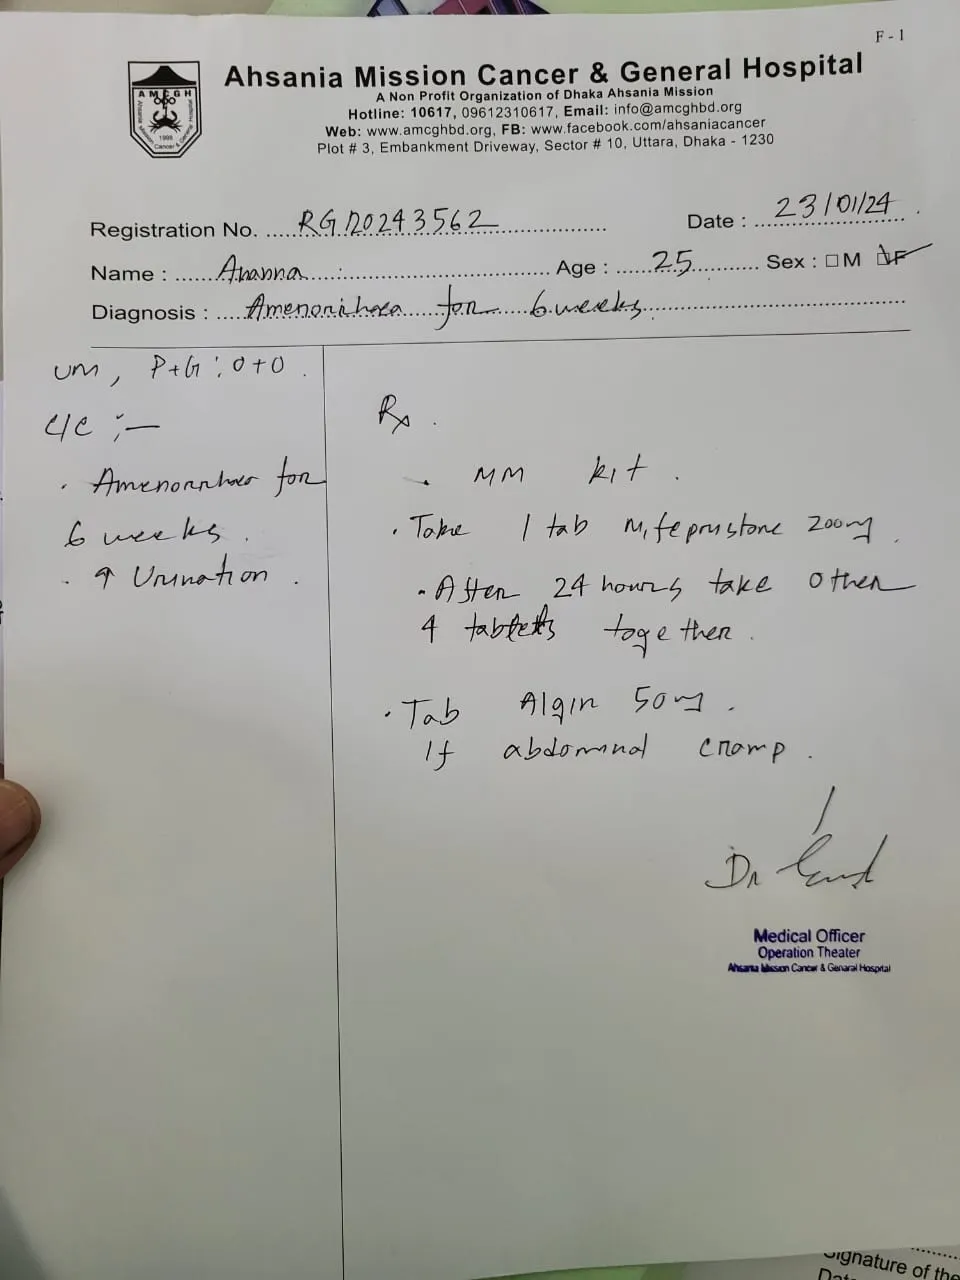 F - 1
AMCGH
Ahsania Mission Cancer & General Hospital
1995
Ahsania Mission Cancer & General Hospital
A Non Profit Organization of Dhaka Ahsania Mission
Hotline: 10617, 09612310617, Email: info@amcghbd.org
Web: www.amcghbd.org, FB: www.facebook.com/ahsaniacancer
Plot # 3, Embankment Driveway, Sector # 10, Uttara, Dhaka - 1230
Registration No. RG120243562 Date : 23/01/24
Name : Ananna Age : 25 Sex : □ M □ F
Diagnosis : Amenorrhoea for 6 weeks
UM, P+G : 0+0.
C/C :-
. Amenorrhoea for
6 weeks.
. ↑ Urination.
Rx.
. MM kit.
. Take 1 tab Mifepristone 200mg.
. After 24 hours take other
4 tablets together.
. Tab Algin 50mg.
If abdominal cramp.
Dr
Medical Officer
Operation Theater
Ahsania Mission Cancer & Genaral Hospital
Signature of the